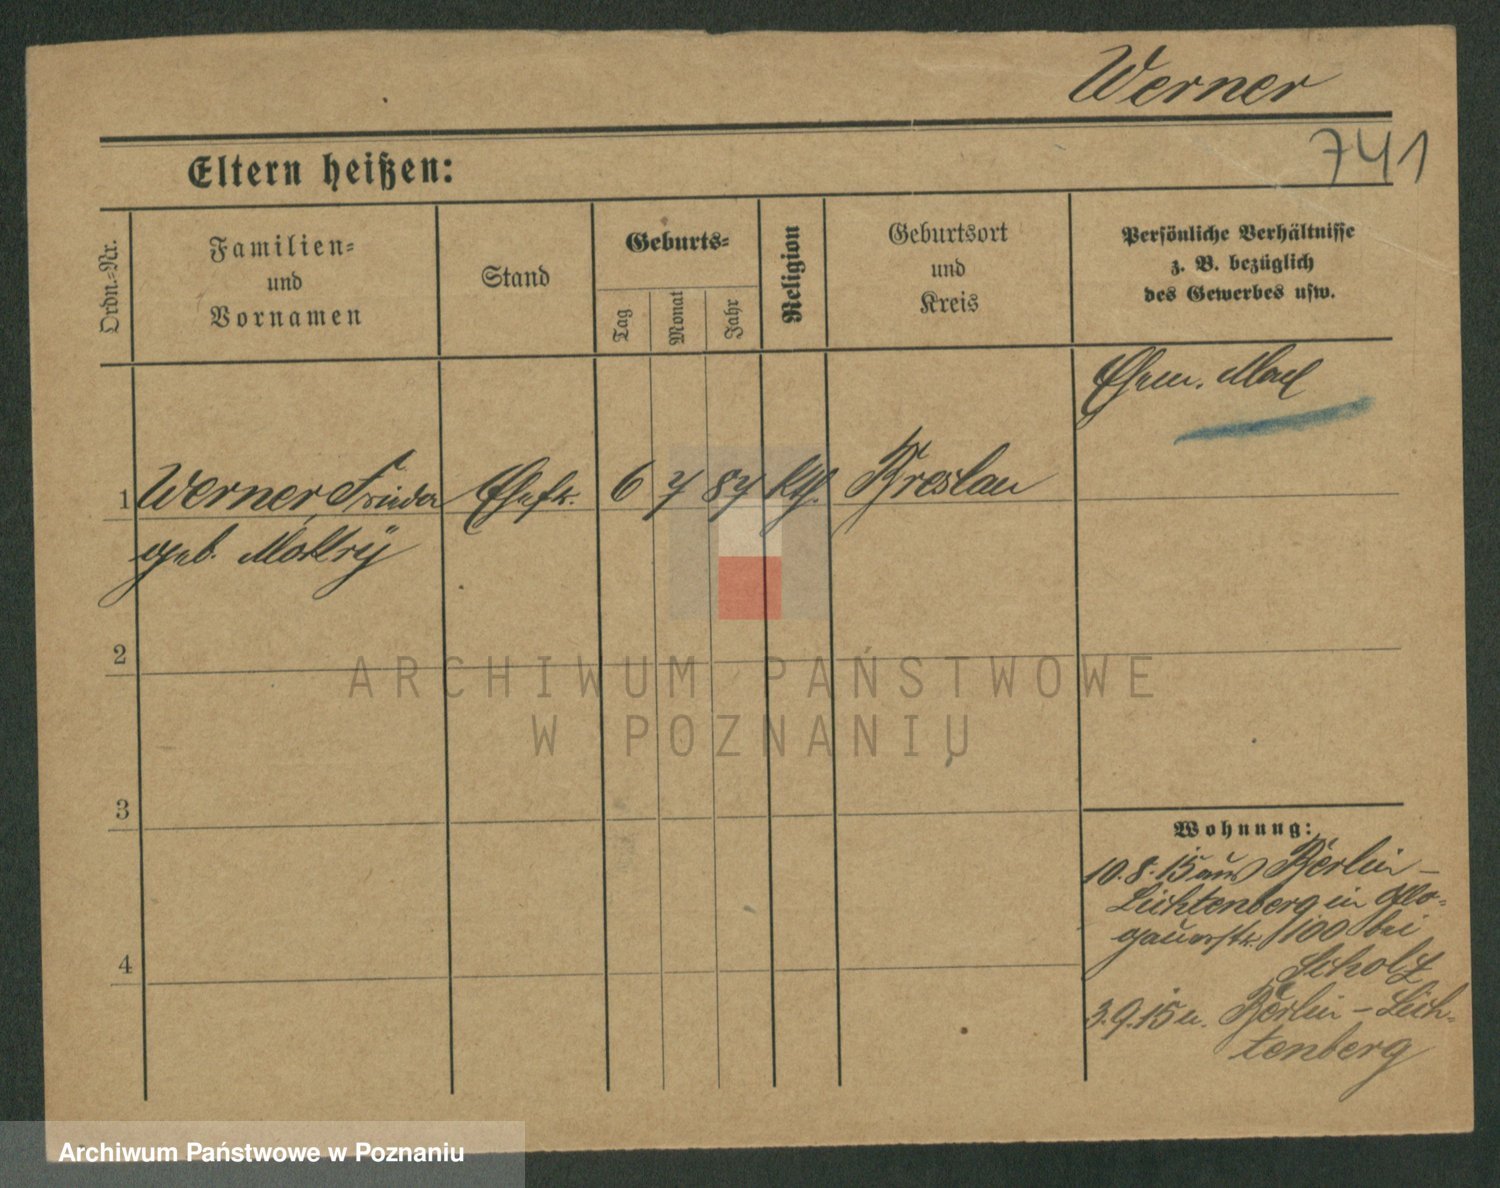 Werner
741
Eltern heißen:
Ordn.=Nr.
Familien=
und
Vornamen
Stand
Geburts=
Tag
Monat
Jahr
Religion
Geburtsort
und
Kreis
Persönliche Verhältnisse
z. B. bezüglich
des Gewerbes usw.
1 Werner, Frieda Ehefr. 6 7 87 kth. Breslau
geb.
2
3
4
Wohnung:
10.8.15 aus Berlin-
Lichtenberg in Glo-
gauerstr. 100 bei
Scholz
3.9.15 n. Berlin-Lich-
tenberg
ARCHIWUM PAŃSTWOWE
W POZNANIU
Archiwum Państwowe w Poznaniu